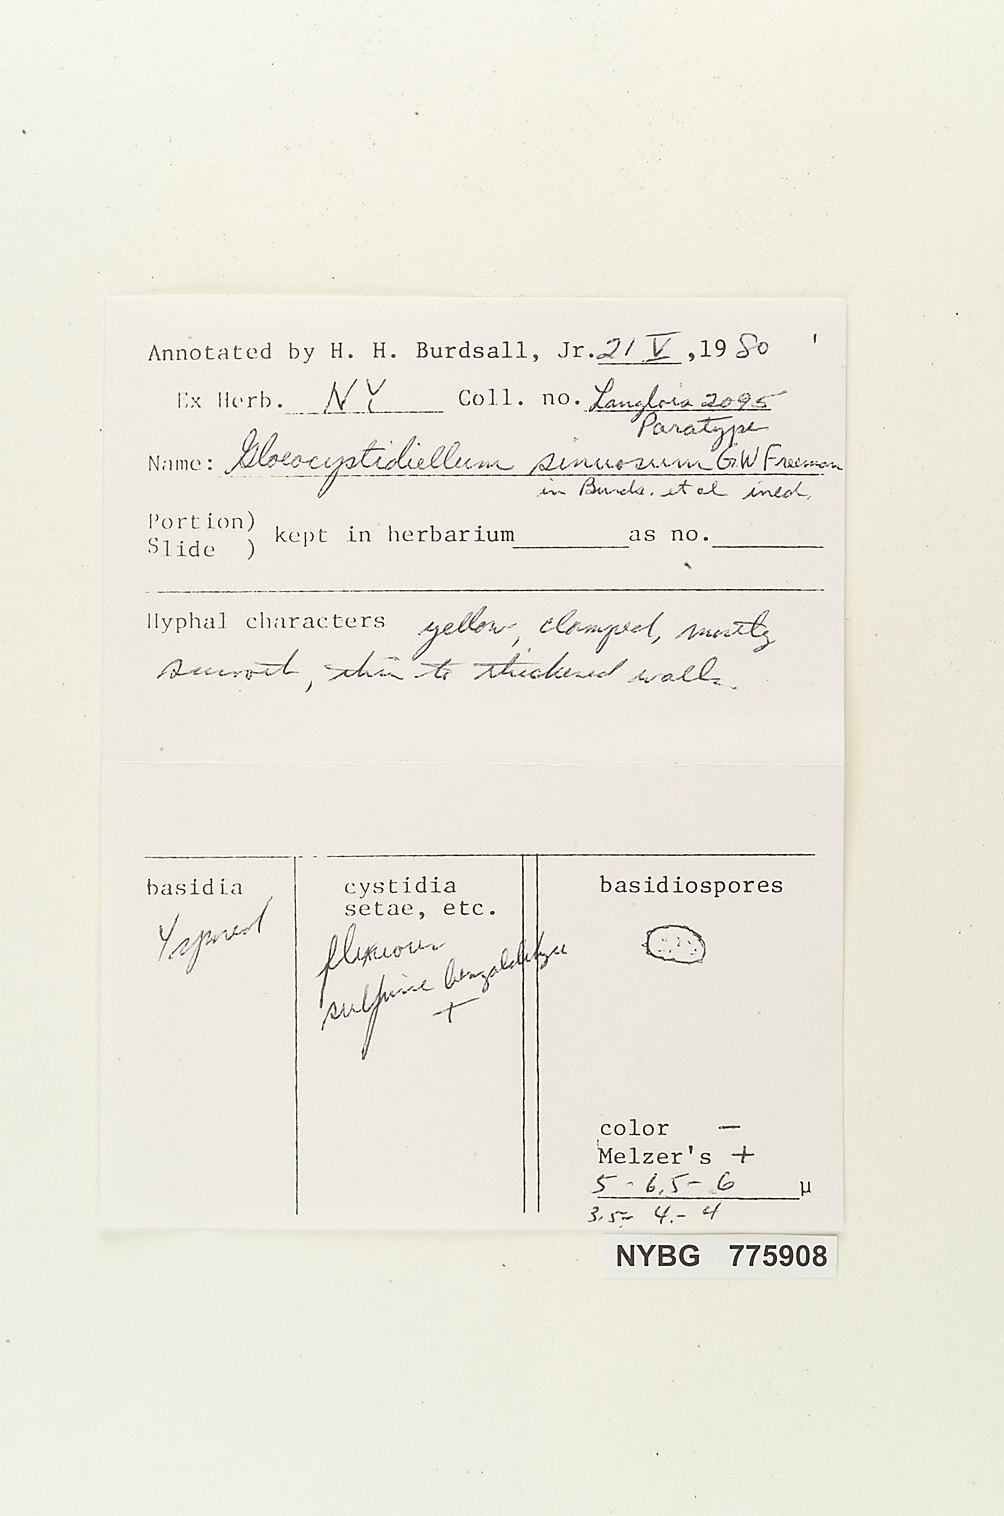 Annotated by H. H. Burdsall, Jr. 21 V, 1980
Ex Herb. NY Coll. no. Langlois 2095
Paratype
Name: Gloeocystidiellum sinuosum G.W Freeman
in Burds. et al ined.
Portion)
Slide ) kept in herbarium________as no.________
Hyphal characters yellow, clamped, mostly
smooth, thin to thickened walls.
basidia
4 spored
cystidia
setae, etc.
flexuous
sulfuric benzaldehyde
+
basidiospores
color —
Melzer's +
5 - 6.5 - 6 µ
3.5 - 4. - 4
NYBG 775908